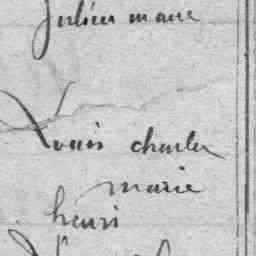 Julien marie
Louis charles
marie
henri